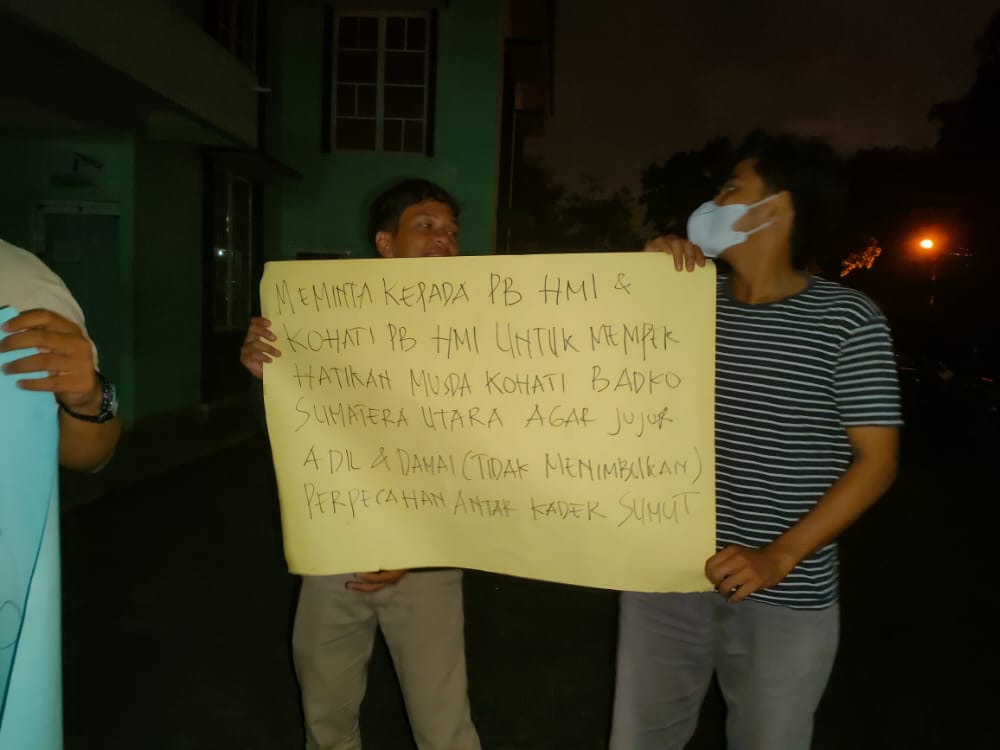 MEMINTA KEPADA PB HMI &
KOHATI PB HMI UNTUK MEMPER
HATIKAN MUSDA KOHATI BADKO
SUMATERA UTARA AGAR JUJUR
ADIL & DAMAI (TIDAK MENIMBULKAN)
PERPECAHAN ANTAR KADER SUMUT